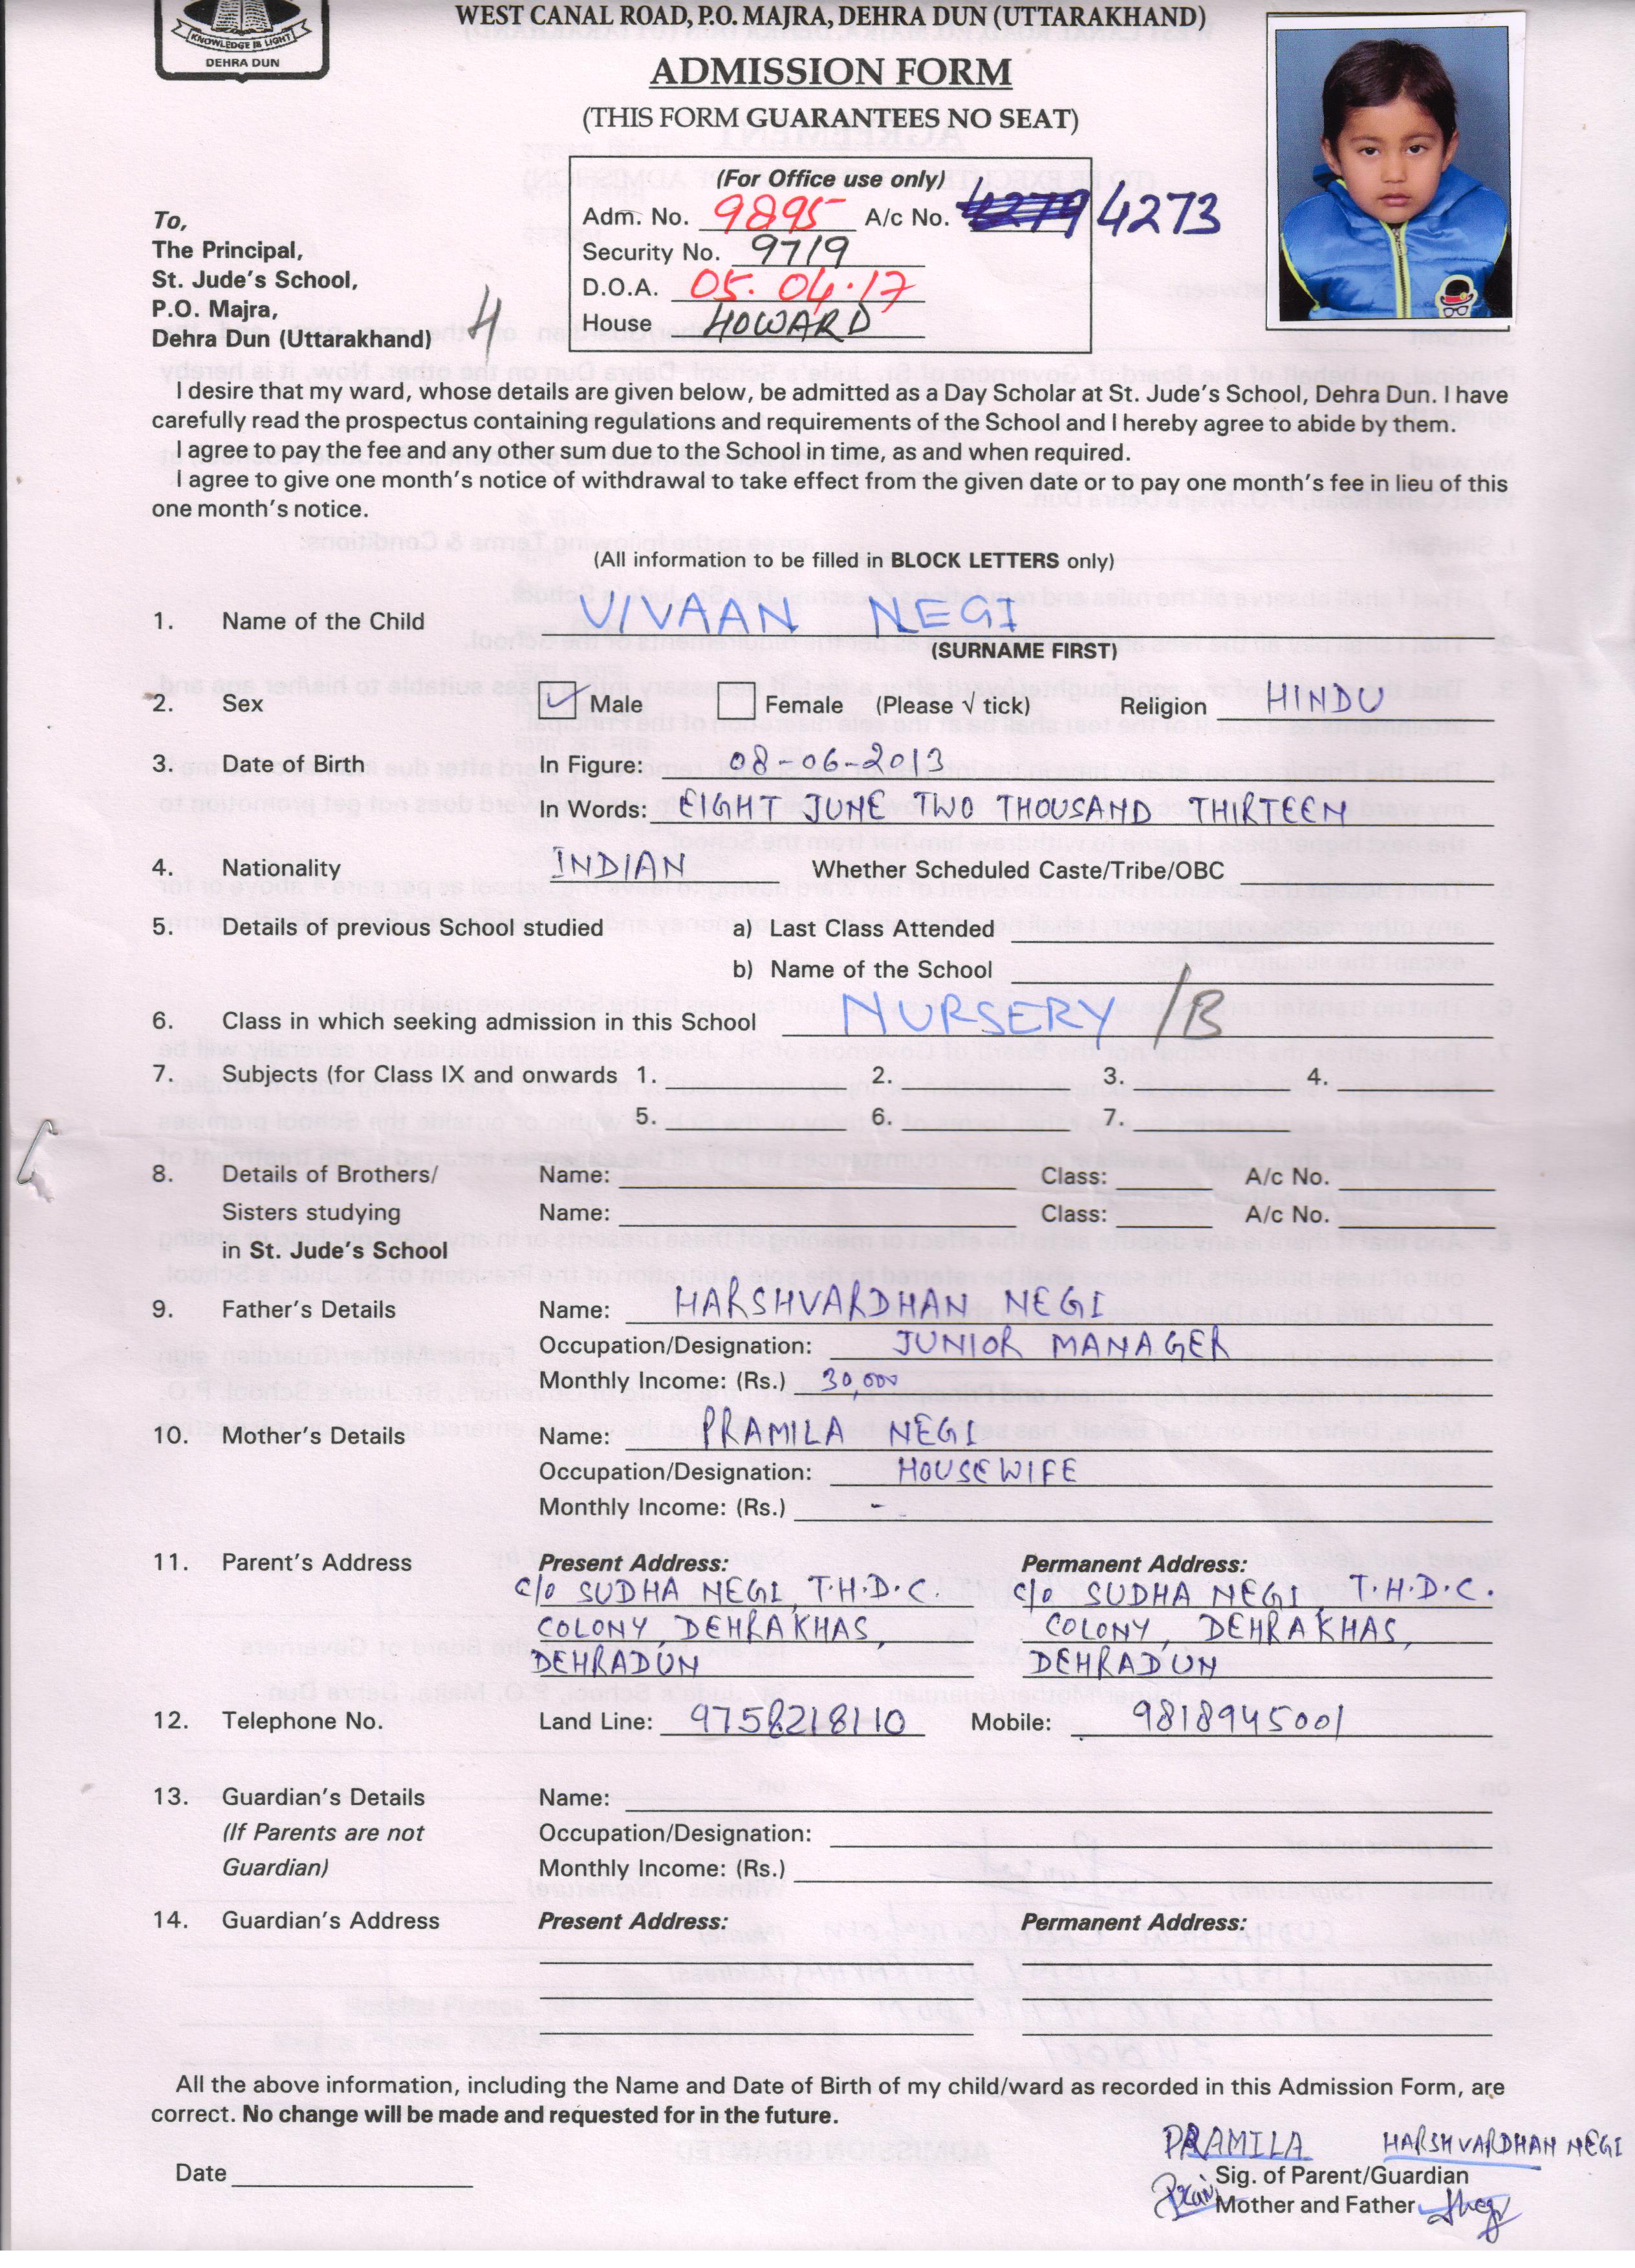 KNOWLEDGE IS LIGHT
DEHRA DUN
WEST CANAL ROAD, P.O. MAJRA, DEHRA DUN (UTTARAKHAND)
ADMISSION FORM
(THIS FORM GUARANTEES NO SEAT)
(For Office use only)
Adm. No. 9895 A/c No. 4273
Security No. 9719
D.O.A. 05.04.17
House HOWARD
To,
The Principal,
St. Jude's School,
P.O. Majra,
Dehra Dun (Uttarakhand) 4
I desire that my ward, whose details are given below, be admitted as a Day Scholar at St. Jude's School, Dehra Dun. I have
carefully read the prospectus containing regulations and requirements of the School and I hereby agree to abide by them.
I agree to pay the fee and any other sum due to the School in time, as and when required.
I agree to give one month's notice of withdrawal to take effect from the given date or to pay one month's fee in lieu of this
one month's notice.
(All information to be filled in BLOCK LETTERS only)
1. Name of the Child VIVAAN NEGI
(SURNAME FIRST)
2. Sex ✓ Male Female (Please √ tick) Religion HINDU
3. Date of Birth In Figure: 08-06-2013
In Words: EIGHT JUNE TWO THOUSAND THIRTEEN
4. Nationality INDIAN Whether Scheduled Caste/Tribe/OBC
5. Details of previous School studied a) Last Class Attended
b) Name of the School
6. Class in which seeking admission in this School NURSERY /B
7. Subjects (for Class IX and onwards 1. 2. 3. 4.
5. 6. 7.
8. Details of Brothers/ Name: Class: A/c No.
Sisters studying Name: Class: A/c No.
in St. Jude's School
9. Father's Details Name: HARSHVARDHAN NEGI
Occupation/Designation: JUNIOR MANAGER
Monthly Income: (Rs.) 30,000
10. Mother's Details Name: PRAMILA NEGI
Occupation/Designation: HOUSEWIFE
Monthly Income: (Rs.) -
11. Parent's Address Present Address: Permanent Address:
c/o SUDHA NEGI, T.H.D.C. c/o SUDHA NEGI, T.H.D.C.
COLONY, DEHRAKHAS, COLONY, DEHRAKHAS,
DEHRADUN DEHRADUN
12. Telephone No. Land Line: 9758218110 Mobile: 9818945001
13. Guardian's Details Name:
(If Parents are not Occupation/Designation:
Guardian) Monthly Income: (Rs.)
14. Guardian's Address Present Address: Permanent Address:
All the above information, including the Name and Date of Birth of my child/ward as recorded in this Admission Form, are
correct. No change will be made and requested for in the future.
PRAMILA HARSHVARDHAN NEGI
Date Sig. of Parent/Guardian
Mother and Father